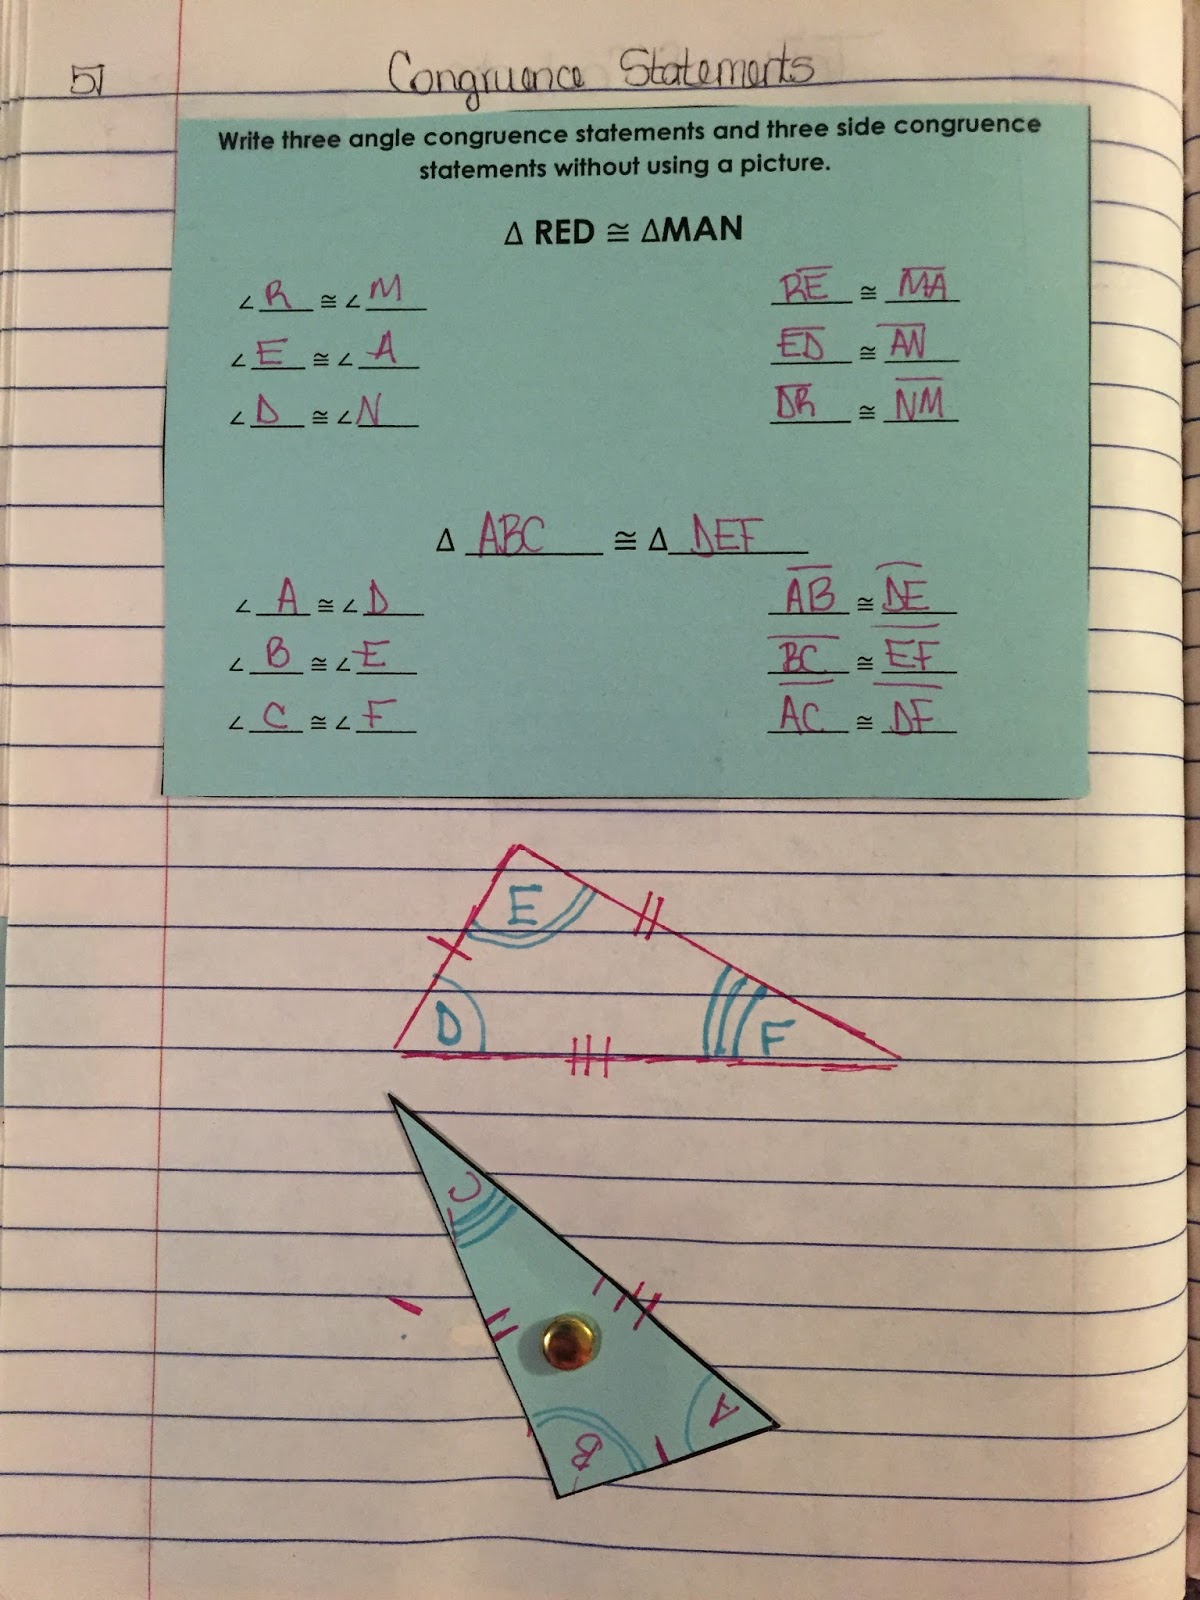 51
Congruence Statements
Write three angle congruence statements and three side congruence
statements without using a picture.
Δ RED ≅ ΔMAN
∠ R ≅ ∠ M R̅E̅ ≅ M̅A̅
∠ E ≅ ∠ A E̅D̅ ≅ A̅N̅
∠ D ≅ ∠ N D̅R̅ ≅ N̅M̅
Δ ABC ≅ Δ DEF
∠ A ≅ ∠ D A̅B̅ ≅ D̅E̅
∠ B ≅ ∠ E B̅C̅ ≅ E̅F̅
∠ C ≅ ∠ F A̅C̅ ≅ D̅F̅
E
D
F
C
A
B